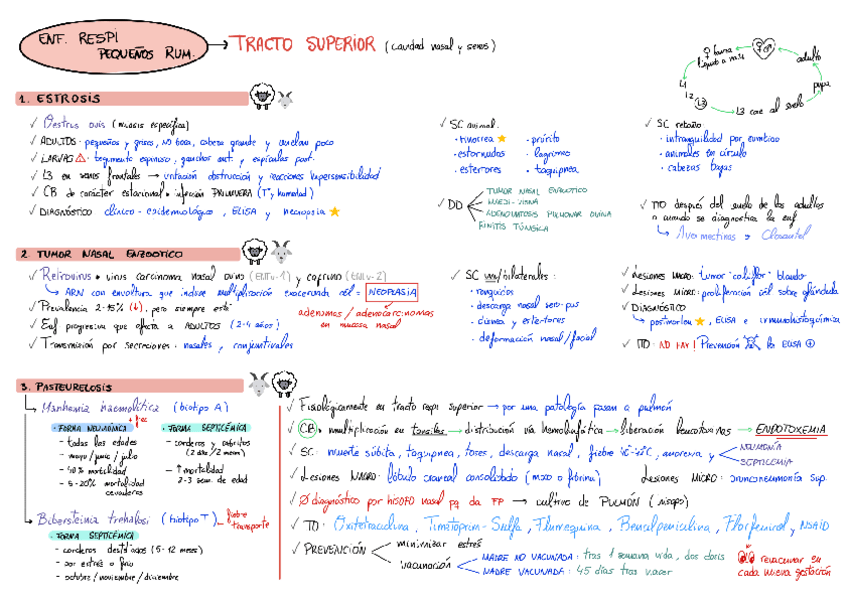 ENF. RESPI
PEQUEÑOS RUM.
TRACTO SUPERIOR (cavidad nasal y senos)
♀ busca
adulto
pupa
L3 cae al suelo
L1
L2
L3
1. ESTROSIS
✓ Oestrus ovis (miiasis específica)
✓ ADULTOS: pequeños y grises, no boca, cabeza grande y vuelan poco
✓ LARVAS ⚠: tegumento espinoso, ganchos ant. y espículas post.
✓ L3 en senos frontales → irritación obstrucción y reacciones hipersensibilidad
✓ CB de carácter estacional • infección PRIMAVERA (Tª y humedad)
✓ DIAGNÓSTICO clínico - epidemiológico, ELISA y necropsia ⭐
✓ SC animal:
· rinorrea ⭐ · prurito
· estornudos · lagrimeo
· estertores · taquipnea
✓ DD
TUMOR NASAL ENZOOTICO
MAEDI - VISNA
ADENOMATOSIS PULMONAR OVINA
RINITIS FÚNGICA
✓ SC rebaño:
· intranquilidad por zumbido
· animales en círculo
· cabezas bajas
✓ TTO después del vuelo de los adultos
o cuando se diagnostica la enf
↳ Avermectinas o Closantel
2. TUMOR NASAL ENZOOTICO
✓ Retrovirus • virus carcinoma nasal ovino (ENTV-1) y caprino (ENTV-2)
↳ ARN con envoltura que induce multiplicación exacerbada cél = NEOPLASIA
✓ Prevalencia 2-15% (↓), pero siempre está
adenomas / adenocarcinomas
en mucosa nasal
✓ Enf progresiva que afecta a ADULTOS (2-4 años)
✓ Transmisión por secreciones: nasales, conjuntivales
✓ SC uni/bilaterales:
· ronquidos
· descarga nasal sero-pus
· disnea y estertores
· deformación nasal/facial
✓ Lesiones MACRO: tumor "coliflor" blando
✓ Lesiones MICRO: proliferación cél sobre glándula
✓ DIAGNÓSTICO
↳ postmortem ⭐, ELISA e inmunohistoquímica
✓ TTO: NO HAY! Prevención la ELISA ⊕
3. PASTEURELOSIS
Manhemia haemolitica (biotipo A)
· FORMA NEUMÓNICA
- todas las edades
- mayo/junio/julio
- 40% morbilidad
- 5-20% mortalidad
cebaderos
· FORMA SEPTICÉMICA
- corderos y cabritos
(2 días/2 meses)
- ↑ mortalidad
2-3 sem. de edad
Bibersteinia trehalosi (biotipo T)
fiebre
transporte
FORMA SEPTICÉMICA
- corderos destetados (5-12 meses)
- por estrés o frío
- octubre/noviembre/diciembre
✓ Fisiológicamente en tracto respi superior → por una patología pasan a pulmón
✓ CB • multiplicación en tonsilas → distribución vía hemolinfática → liberación leucotoxinas → ENDOTOXEMIA
✓ SC: muerte súbita, taquipnea, toses, descarga nasal, fiebre 41°C-42°C, anorexia y
NEUMONÍA
SEPTICEMIA
✓ Lesiones MACRO: lóbulo craneal consolidado (moco o fibrina) Lesiones MICRO: bronconeumonía sup.
✓ Ø diagnóstico por hisopo nasal pq da FP → cultivo de PULMÓN (hisopo)
✓ TTO: Oxitetraciclina, Trimetoprim-Sulfa, Flumequina, Bencilpenicilina, Florfenicol y NSAID
✓ PREVENCIÓN
minimizar estrés
vacunación
MADRE NO VACUNADA: tras 1 semana vida, dos dosis
MADRE VACUNADA: 45 días tras nacer
revacunar en
cada nueva gestación